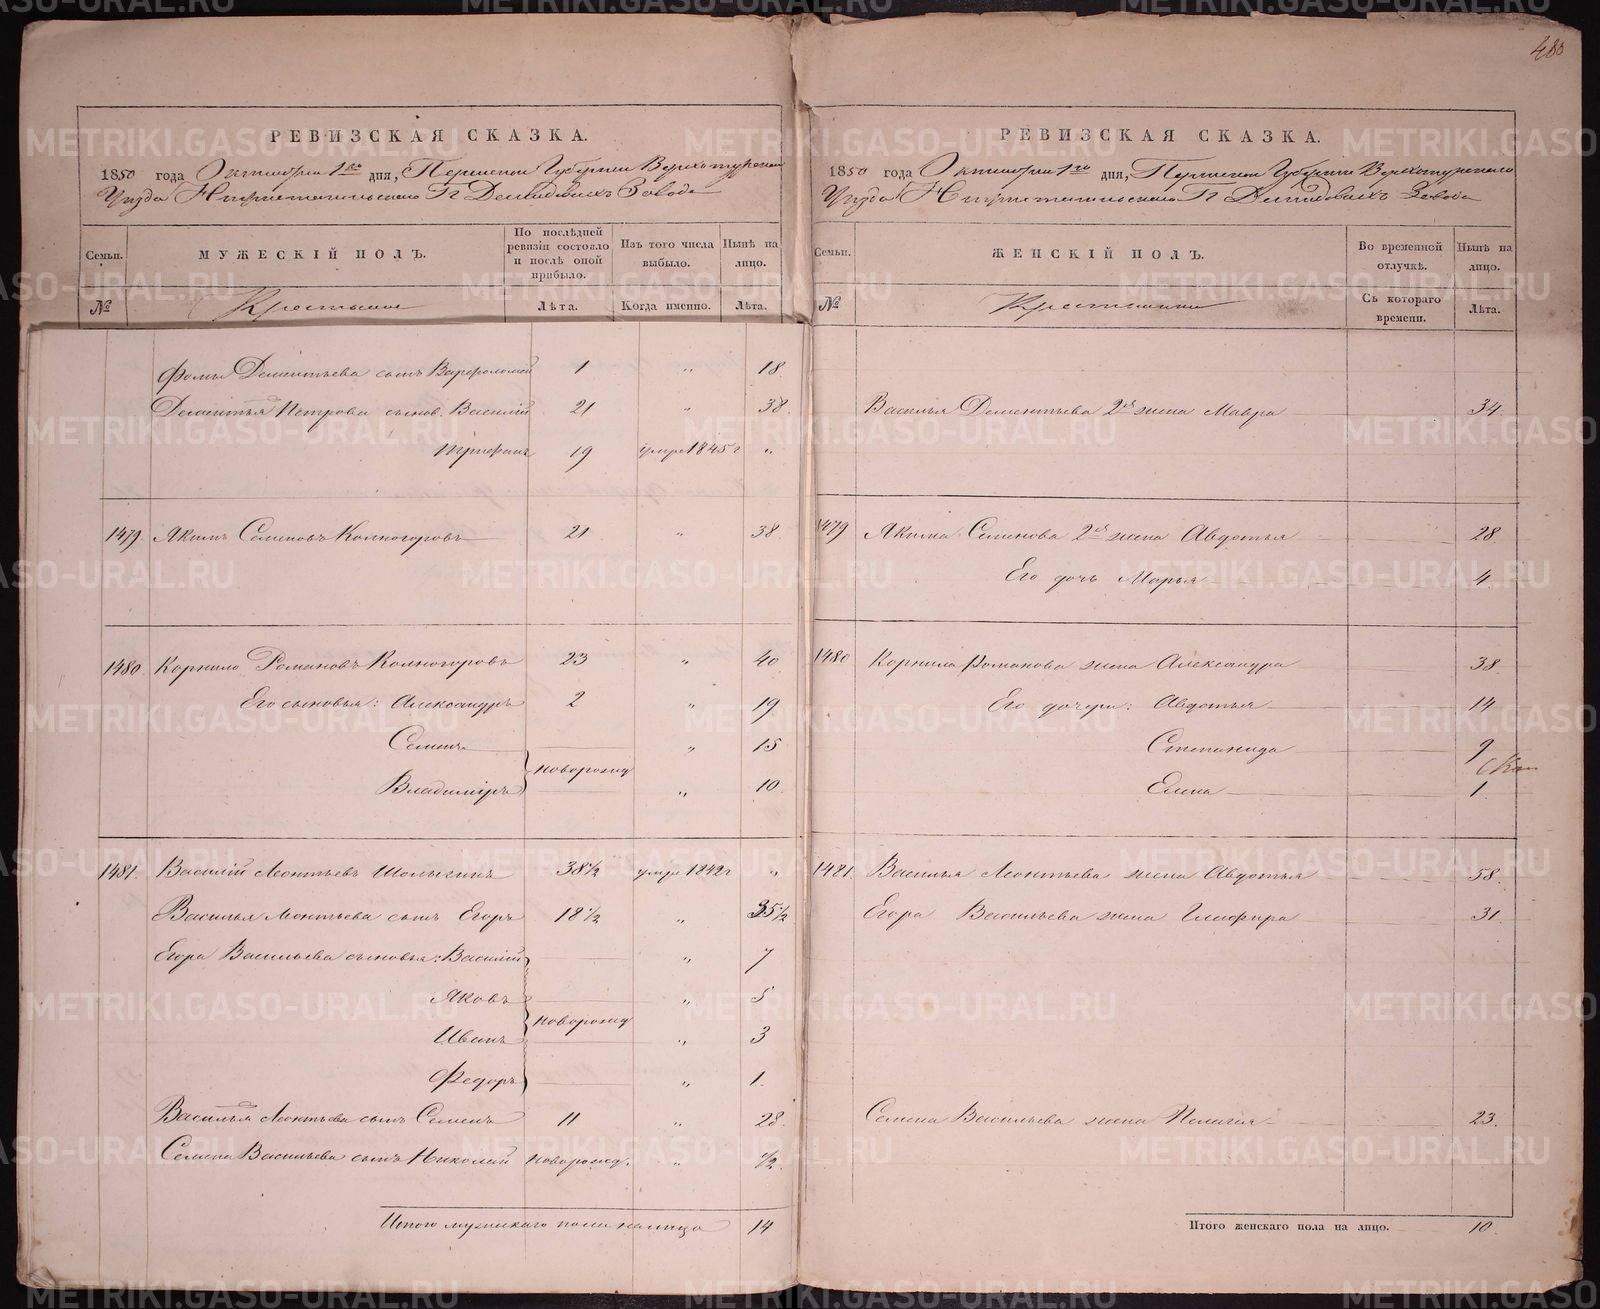 480
РЕВИЗСКАЯ СКАЗКА.
1850 года Октября 1го дня, Пермской Губернии Верхотурскаго
Уезда Нижнетагильскаго Гг Демидовыхъ Завода
Семьи. МУЖЕСКІЙ ПОЛЪ. По послѣдней ревизіи состояло и послѣ оной прибыло. Изъ того числа выбыло. Нынѣ на лицо.
№ Крестьяне Лѣта. Когда именно. Лѣта.
Фомы Дементьева сынъ Варфоломей 1 " 18
Дементья Петрова сынов. Василій 21 " 38
Трифонъ 19 умре 1845 г "
1479 Якимъ Семеновъ Колногоровъ 21 " 38
1480 Корнило Романовъ Колногоровъ 23 " 40
Его сыновья: Александръ 2 " 19
Семенъ " 15
новорожд
Владиміръ " 10
1481 Василій Леонтьевъ Шолыгинъ 38 1/2 умре 1842 г "
Василья Леонтьева сынъ Егоръ 18 1/2 " 35 1/2
Егора Васильева сыновья: Василій " 7
Яковъ " 5
новорожд
Иванъ " 3
Федоръ " 1
Василья Леонтьева сынъ Семенъ 11 " 28
Семена Васильева сынъ Николай новорожд. " 1/2
Итого мужескаго пола налицо 14
РЕВИЗСКАЯ СКАЗКА.
1850 года Октября 1го дня, Пермской Губернии Верхотурскаго
Уезда Нижнетагильскаго Гг Демидовыхъ Завода
Семьи. ЖЕНСКІЙ ПОЛЪ. Во временной отлучкѣ. Нынѣ на лицо.
№ Крестьянки Съ котораго времени. Лѣта.
Василья Дементьева 2я жена Мавра 34
1479 Якима Семенова 2я жена Авдотья 28
Его дочь Марья 4
1480 Корнила Романова жена Александра 38
Его дочери: Авдотья 14
Степанида 9
Елена 1
1481 Василья Леонтьева жена Авдотья 58
Егора Васильева жена Глафира 31
Семена Васильева жена Пелагия 23
Итого женскаго пола на лицо. 10
METRIKI.GASO-URAL.RU